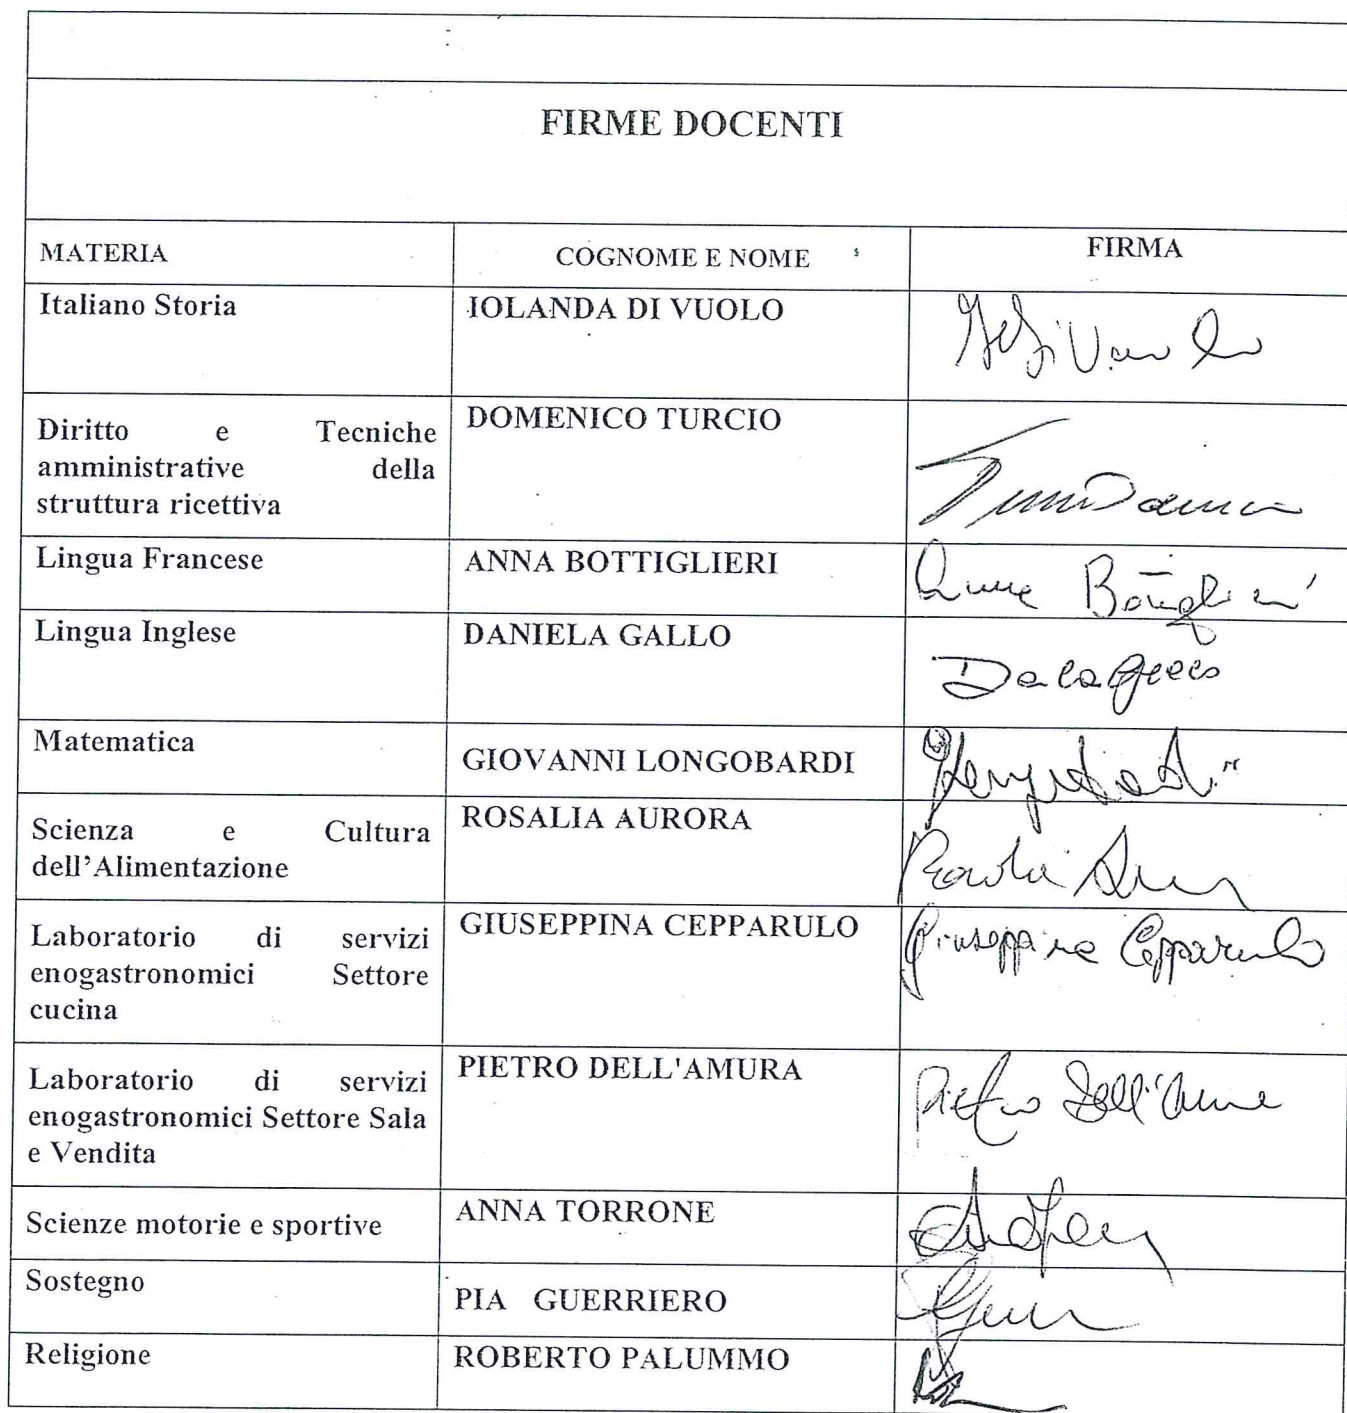 FIRME DOCENTI
MATERIA COGNOME E NOME FIRMA
Italiano Storia IOLANDA DI VUOLO
Diritto e Tecniche
amministrative della
struttura ricettiva
DOMENICO TURCIO
Lingua Francese ANNA BOTTIGLIERI
Lingua Inglese DANIELA GALLO
Matematica GIOVANNI LONGOBARDI
Scienza e Cultura
dell'Alimentazione
ROSALIA AURORA
Laboratorio di servizi
enogastronomici Settore
cucina
GIUSEPPINA CEPPARULO Giuseppina Cepparulo
Laboratorio di servizi
enogastronomici Settore Sala
e Vendita
PIETRO DELL'AMURA Pietro Dell'Amura
Scienze motorie e sportive ANNA TORRONE
Sostegno PIA GUERRIERO
Religione ROBERTO PALUMMO